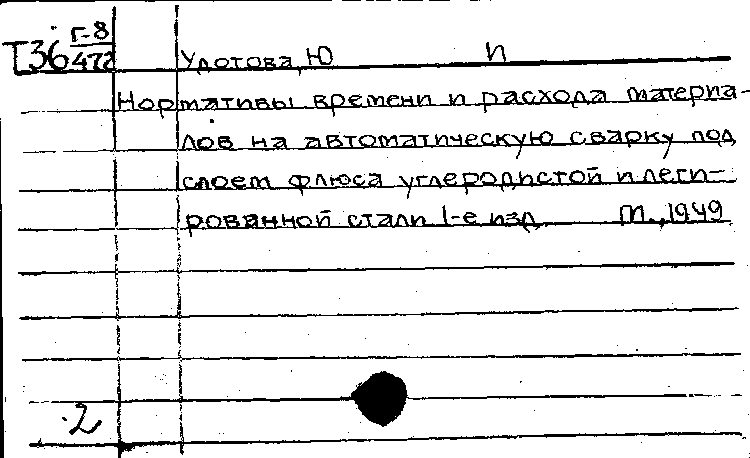 Т36 Г-8/472 Удотова, Ю П
Нормативы времени и расхода материа-
лов на автоматическую сварку под
слоем флюса углеродистой и леги-
рованной стали 1-е изд М., 1949
2